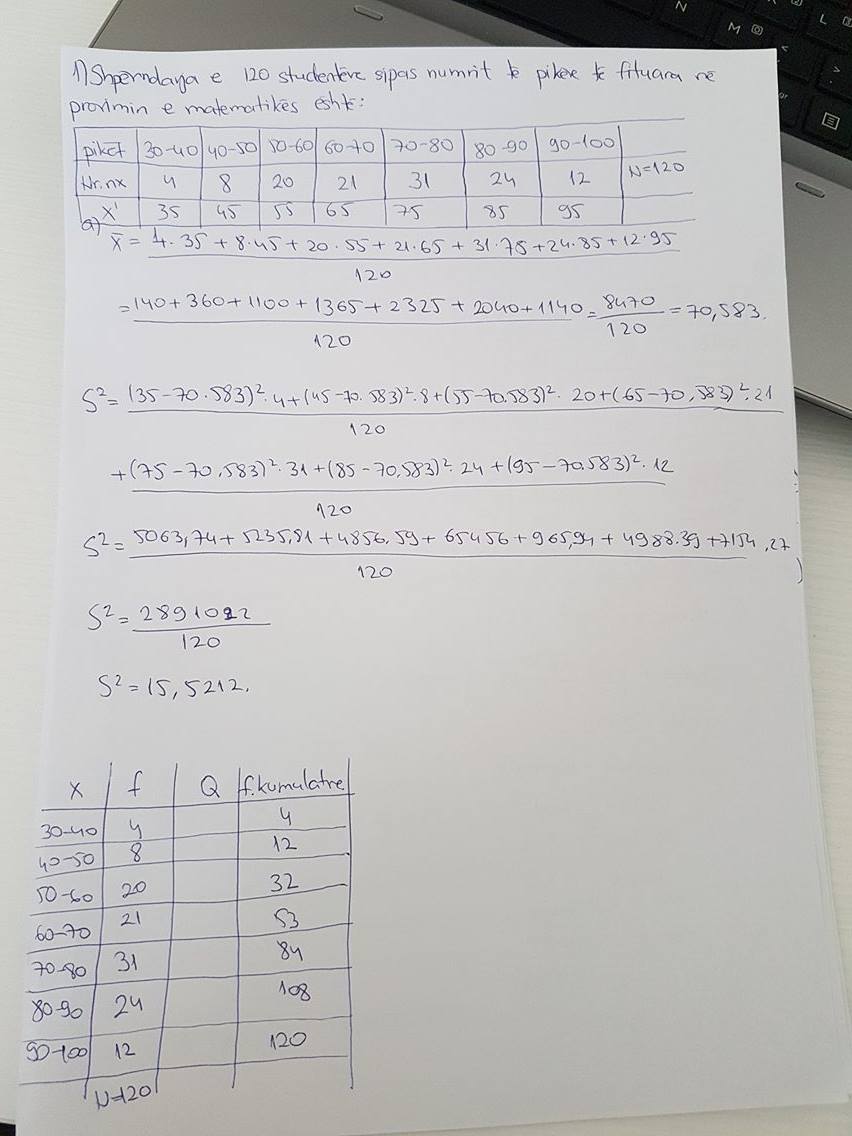 1) Shperndaya e 120 studentëve sipas numrit të pikëve të fituara në
provimin e matematikës është:
piket 30-40 40-50 50-60 60-70 70-80 80-90 90-100
Nr.nx 4 8 20 21 31 24 12 N=120
X' 35 45 55 65 75 85 95
a) x̄ = 4.35 + 8.45 + 20.55 + 21.65 + 31.75 + 24.85 + 12.95
120
= 140+360+1100+1365+2325+2040+1140 = 8470 = 70,583.
120 120
S² = (35-70.583)².4+(45-70.583)².8+(55-70,583)².20+(65-70,583)².21
120
+(75-70,583)².31+(85-70,583)².24+(95-70.583)².12
120
S² = 5063,74+5235,81+4856,59+65456+965,94+4988.39+7154,27
120
S² = 2891022
120
S² = 15,5212.
X f Q f.kumulatve
30-40 4 4
40-50 8 12
50-60 20 32
60-70 21 53
70-80 31 84
80-90 24 108
90-100 12 120
N=120
N
M
L